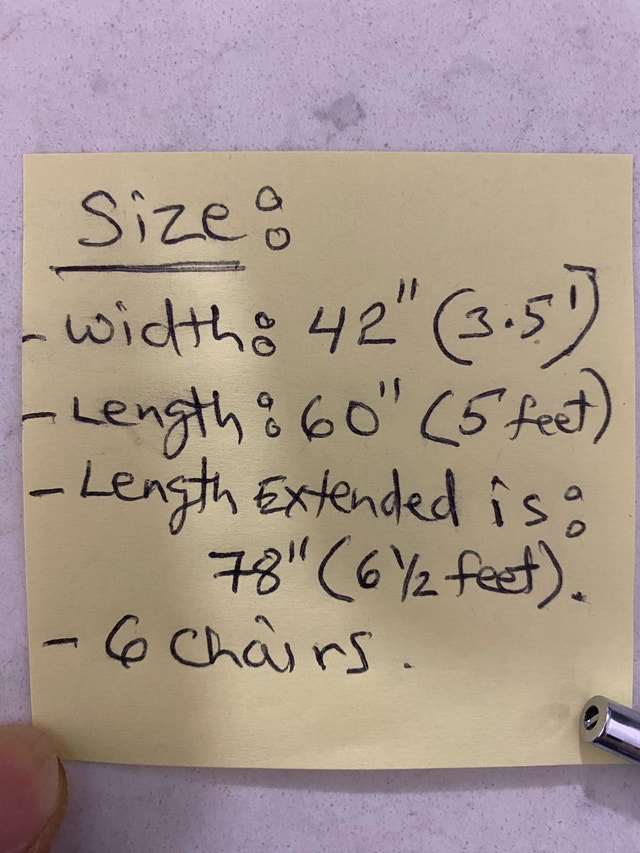 Size:
- Width: 42" (3.5')
- Length: 60" (5 feet)
- Length Extended is:
78" (6 1/2 feet).
- 6 Chairs.